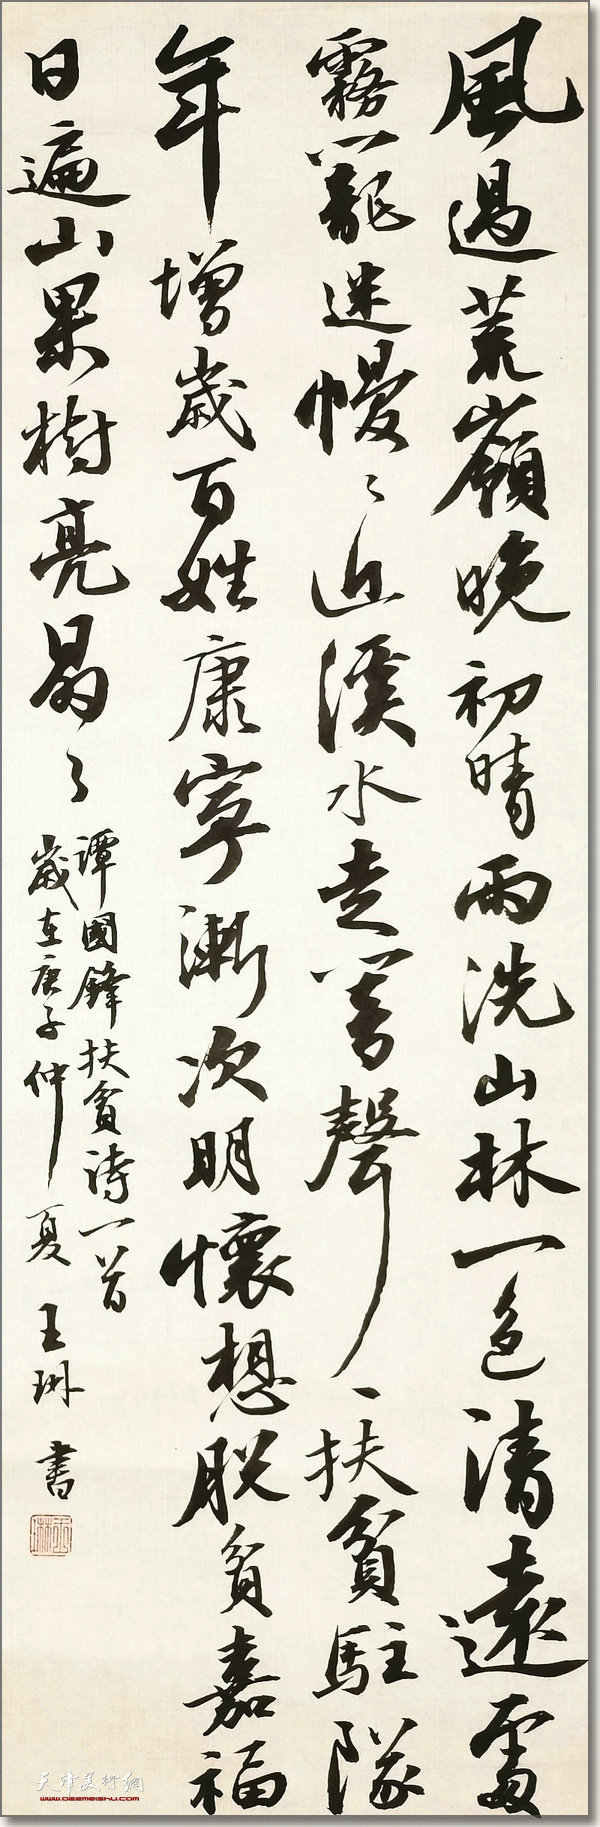 風過荒嶺晚初晴雨洗山林一色清遠處
霧籠迷幔々近溪水走著聲々扶貧駐隊
年增歲百姓康寧漸次明懷想脱貧嘉福
日遍山果樹亮晶々
譚國鋒扶貧詩一首
歲在庚子仲夏 王琳書
天津美術網
www.022meishu.com